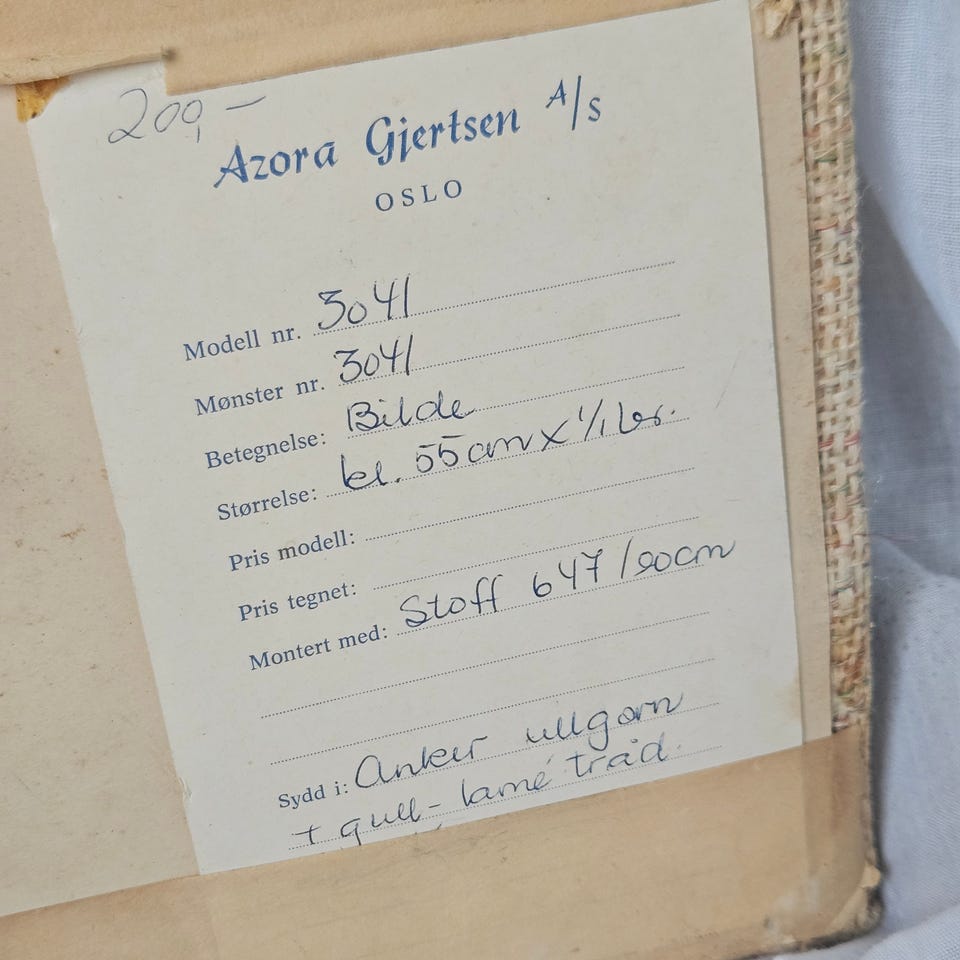 200,-
Azora Gjertsen A/s
OSLO
Modell nr. 3041
Mønster nr. 3041
Betegnelse: Bilde
Størrelse: kl. 55cm x 1/1 br.
Pris modell:
Pris tegnet:
Montert med: Stoff 647/90cm
Sydd i: Anker ullgarn
+ gull-lamé tråd.